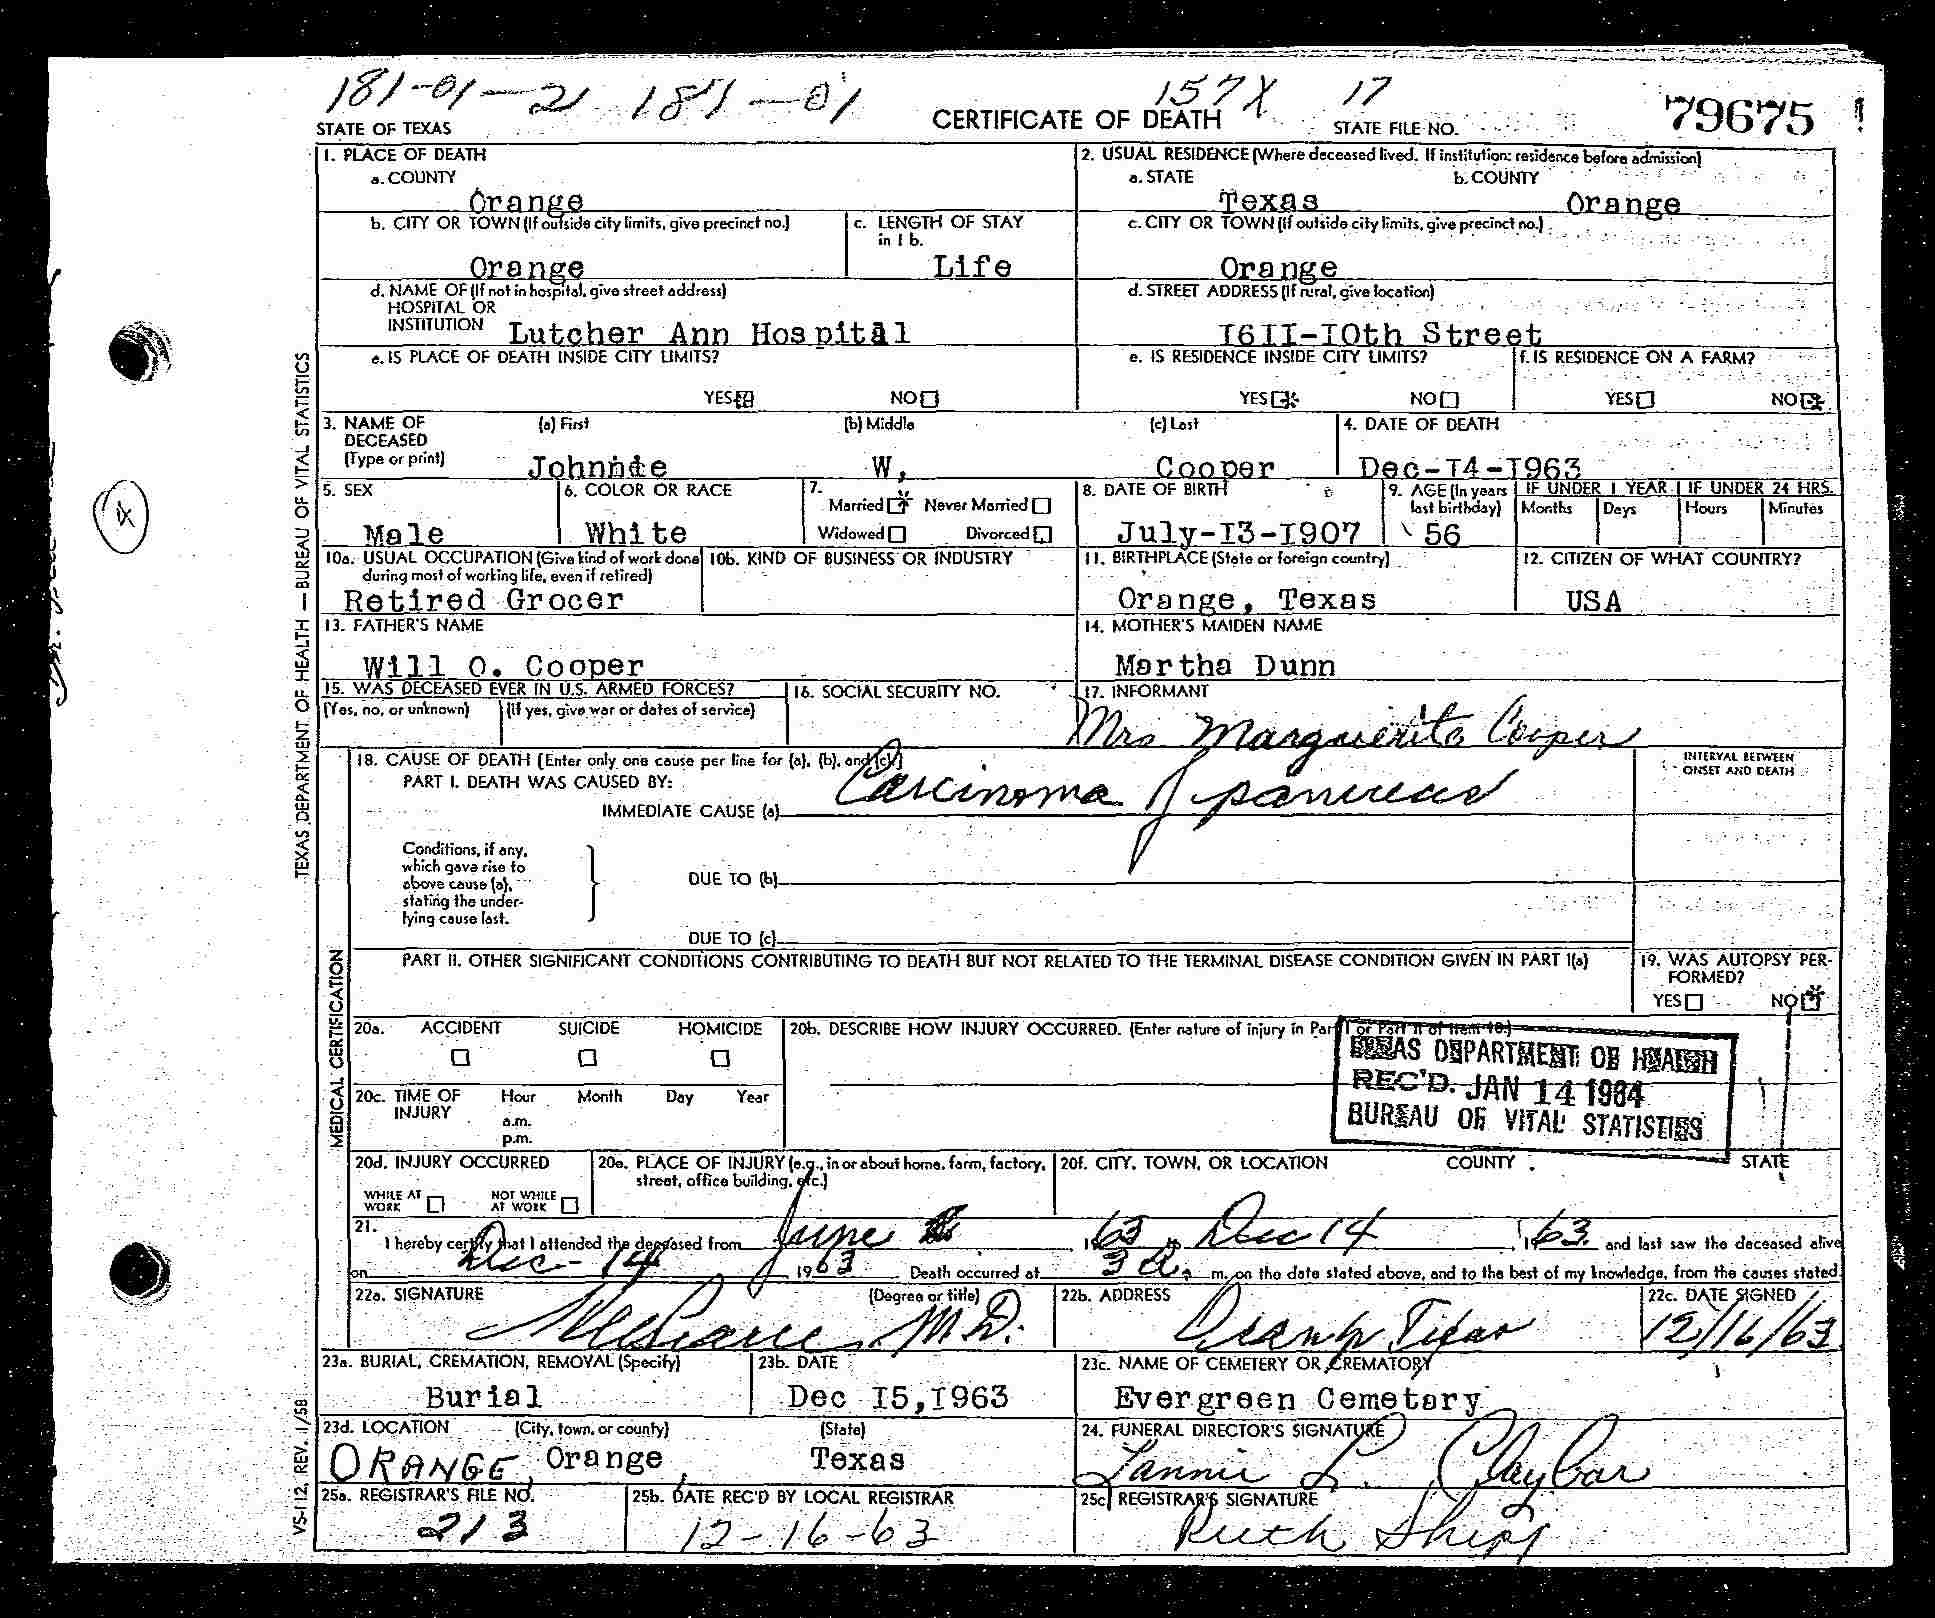 181-01-21 181-01 157X 17
STATE OF TEXAS CERTIFICATE OF DEATH STATE FILE NO. 79675
1. PLACE OF DEATH 2. USUAL RESIDENCE (Where deceased lived. If institution: residence before admission)
a. COUNTY a. STATE b. COUNTY
Orange Texas Orange
b. CITY OR TOWN (If outside city limits, give precinct no.) c. LENGTH OF STAY in 1 b. c. CITY OR TOWN (If outside city limits, give precinct no.)
Orange Life Orange
d. NAME OF (If not in hospital, give street address) d. STREET ADDRESS (If rural, give location)
HOSPITAL OR
INSTITUTION Lutcher Ann Hospital I6II-IOth Street
e. IS PLACE OF DEATH INSIDE CITY LIMITS? e. IS RESIDENCE INSIDE CITY LIMITS? f. IS RESIDENCE ON A FARM?
YES NO YES NO YES NO
3. NAME OF DECEASED (Type or print) (a) First (b) Middle (c) Last 4. DATE OF DEATH
Johnnie W, Cooper Dec-I4-I963
5. SEX 6. COLOR OR RACE 7. Married Never Married 8. DATE OF BIRTH 9. AGE (In years last birthday) IF UNDER 1 YEAR IF UNDER 24 HRS.
Widowed Divorced Months Days Hours Minutes
Male White July-I3-I907 56
10a. USUAL OCCUPATION (Give kind of work done during most of working life, even if retired) 10b. KIND OF BUSINESS OR INDUSTRY 11. BIRTHPLACE (State or foreign country) 12. CITIZEN OF WHAT COUNTRY?
Retired Grocer Orange, Texas USA
13. FATHER'S NAME 14. MOTHER'S MAIDEN NAME
Will O. Cooper Martha Dunn
15. WAS DECEASED EVER IN U.S. ARMED FORCES? 16. SOCIAL SECURITY NO. 17. INFORMANT
(Yes, no, or unknown) (If yes, give war or dates of service) Mrs Marguerite Cooper
18. CAUSE OF DEATH (Enter only one cause per line for (a), (b), and (c)) INTERVAL BETWEEN ONSET AND DEATH
PART I. DEATH WAS CAUSED BY:
IMMEDIATE CAUSE (a) Carcinoma of pancreas
Conditions, if any,
which gave rise to
above cause (a),
stating the under-
lying cause last.
DUE TO (b)
DUE TO (c)
PART II. OTHER SIGNIFICANT CONDITIONS CONTRIBUTING TO DEATH BUT NOT RELATED TO THE TERMINAL DISEASE CONDITION GIVEN IN PART I(a) 19. WAS AUTOPSY PERFORMED?
YES NO
20a. ACCIDENT SUICIDE HOMICIDE 20b. DESCRIBE HOW INJURY OCCURRED. (Enter nature of injury in Part I or Part II of item 18.)
TEXAS DEPARTMENT OF HEALTH
REC'D. JAN 14 1964
BUREAU OF VITAL STATISTICS
20c. TIME OF INJURY Hour Month Day Year
a.m.
p.m.
20d. INJURY OCCURRED 20e. PLACE OF INJURY (e.g., in or about home, farm, factory, street, office building, etc.) 20f. CITY, TOWN, OR LOCATION COUNTY STATE
WHILE AT WORK NOT WHILE AT WORK
21.
I hereby certify that I attended the deceased from June 1963 to Dec 14, 1963. and last saw the deceased alive
on Dec-14 1963 Death occurred at 3 A. m. on the date stated above, and to the best of my knowledge, from the causes stated.
22a. SIGNATURE (Degree or title) 22b. ADDRESS 22c. DATE SIGNED
M.D. Orange Texas 12/16/63
23a. BURIAL, CREMATION, REMOVAL (Specify) 23b. DATE 23c. NAME OF CEMETERY OR CREMATORY
Burial Dec I5,I963 Evergreen Cemetary
23d. LOCATION (City, town, or county) (State) 24. FUNERAL DIRECTOR'S SIGNATURE
ORANGE, Orange, Texas Lannie L. Claybar
25a. REGISTRAR'S FILE NO. 25b. DATE REC'D BY LOCAL REGISTRAR 25c. REGISTRAR'S SIGNATURE
213 12-16-63 Ruth Shipp
TEXAS DEPARTMENT OF HEALTH — BUREAU OF VITAL STATISTICS
MEDICAL CERTIFICATION
VS-112, REV. 1/58